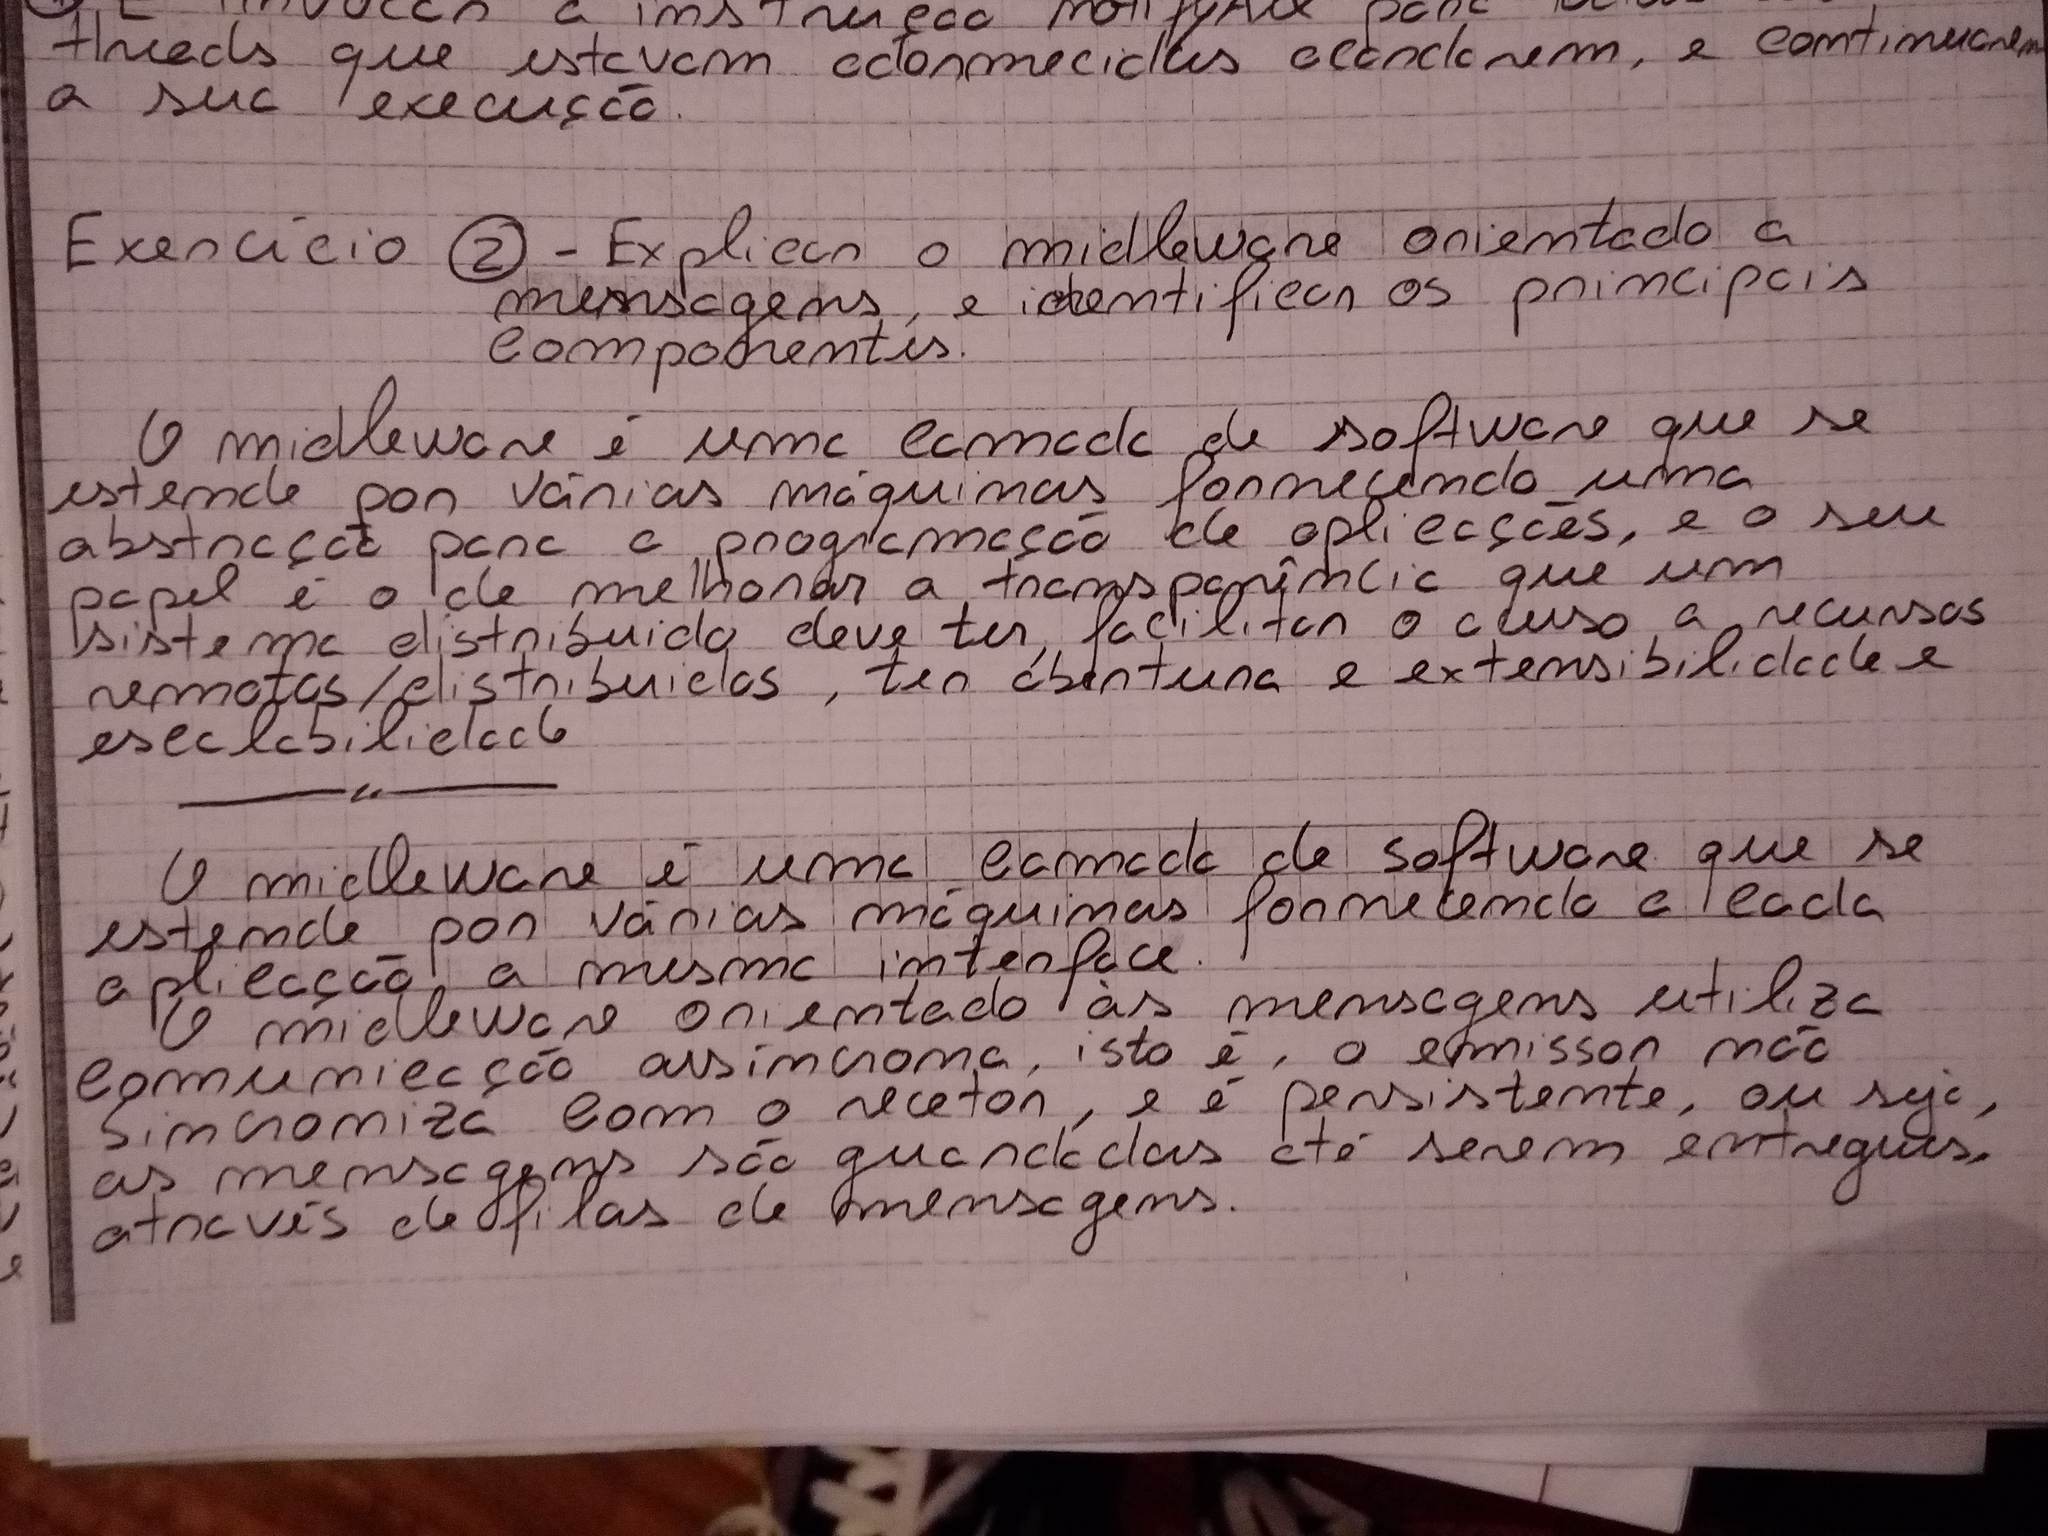 E invocar a instrução notifyAll para
threads que estavam adormecidas acordarem, e continuarem
a sua execução.
Exercício 2 - Explicar o midleware orientado a
mensagens, e identificar os principais
componentes.
O midleware é uma camada de software que se
estende por várias máquinas fornecendo uma
abstração para a programação de aplicações, e o seu
papel é o de melhorar a transparência que um
sistema distribuido deve ter, facilitar o acesso a recursos
remotos/distribuidos, ter abertura e extensibilidade e
escalabilidade
O midleware é uma camada de software que se
estende por várias máquinas fornecendo a cada
aplicação a mesma interface.
O midleware orientado às mensagens utiliza
comunicação assíncrona, isto é, o emissor não
sincroniza com o recetor, e é persistente, ou seja,
as mensagens são guardadas até serem entregues,
através de filas de mensagens.